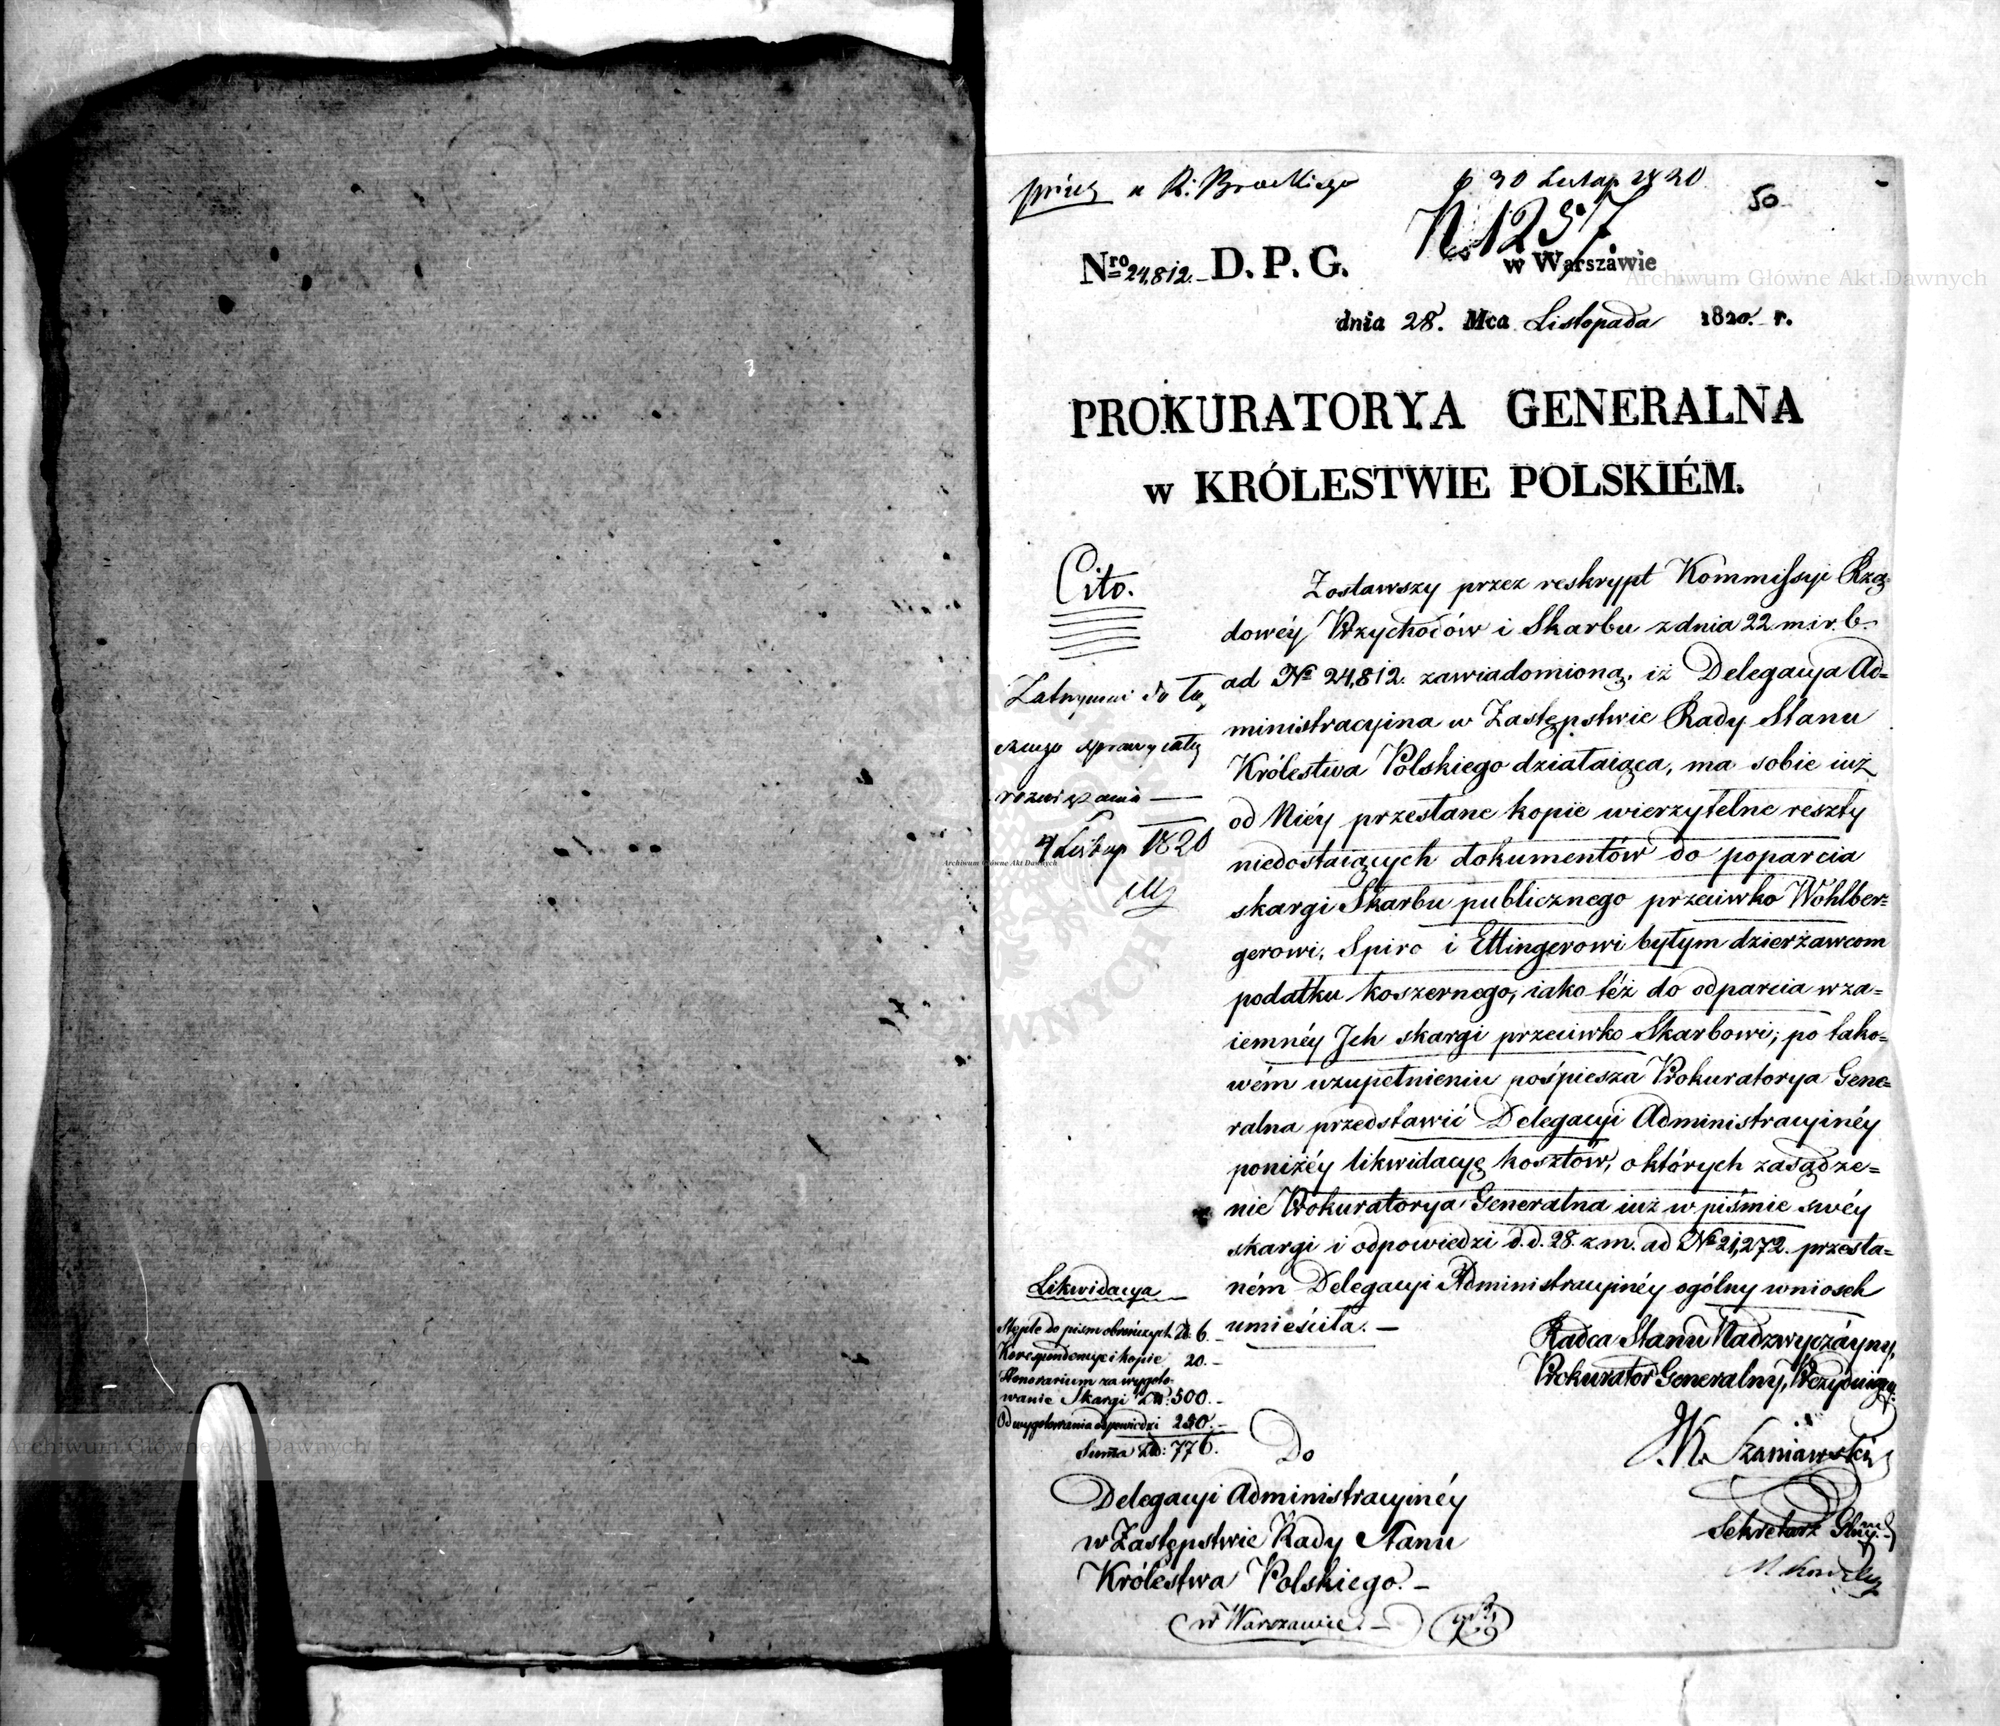 u R: Brockiego
p 30 Listop 1820
50
N 1257
Nro 24,812. D. P. G.
w Warszawie
dnia 28. Mca Listopada 1820. r.
PROKURATORYA GENERALNA
w KRÓLESTWIE POLSKIÉM.
Cito.
Zostawszy przez reskrypt Kommissyi Rzą-
dowéy Przychodów i Skarbu z dnia 22 m. i r. b.
ad No 24,812. zawiadomioną, iż Delegacya Ad=
ministracyina w Zastępstwie Rady Stanu
Królestwa Polskiego działaiąca, ma sobie iuż
od Niéy przesłane kopie wierzytelne reszty
niedostaiących dokumentów do poparcia
skargi Skarbu publicznego przeciwko Wohlber=
gerowi, Spiro i Ettingerowi byłym dzierżawcom
podatku koszernego, iako téż do odparcia wza=
iemnéy Jch skargi przeciwko Skarbowi; po tako=
wém uzupełnieniu pośpiesza Prokuratorya Gene=
ralna przedstawić Delegacyi Administracyinéy
poniżéy likwidacyę kosztów, o których zasądze=
nie Prokuratorya Generalna iuż w piśmie swéy
skargi i odpowiedzi d. d. 28. z. m. ad No 21,272. przesła=
ném Delegacyi Administracyinéy ogólny wniosek
umieściła. —
Zatrzymać do
sprawy
rozwiązania —
4 Listop 1820
Likwidacya
Stęple do pism obrończych Zł: 6. –
Korespondencye i kopie 20. –
Honorarium za wygoto-
wanie Skargi Zł: 500. –
Od wygotowania odpowiedzi 250. –
Summa Zł: 776.
Radca Stanu Nadzwyczáyny,
Prokurator Generalny, Prezyduiący.
J. K. Szaniawski
Sekretarz Glny.
Do
Delegacyi Administracyinéy
w Zastępstwie Rady Stanu
Królestwa Polskiego. –
w Warszawie. –
Archiwum Główne Akt Dawnych
Archiwum Główne Akt Dawnych
Archiwum Główne Akt Dawnych